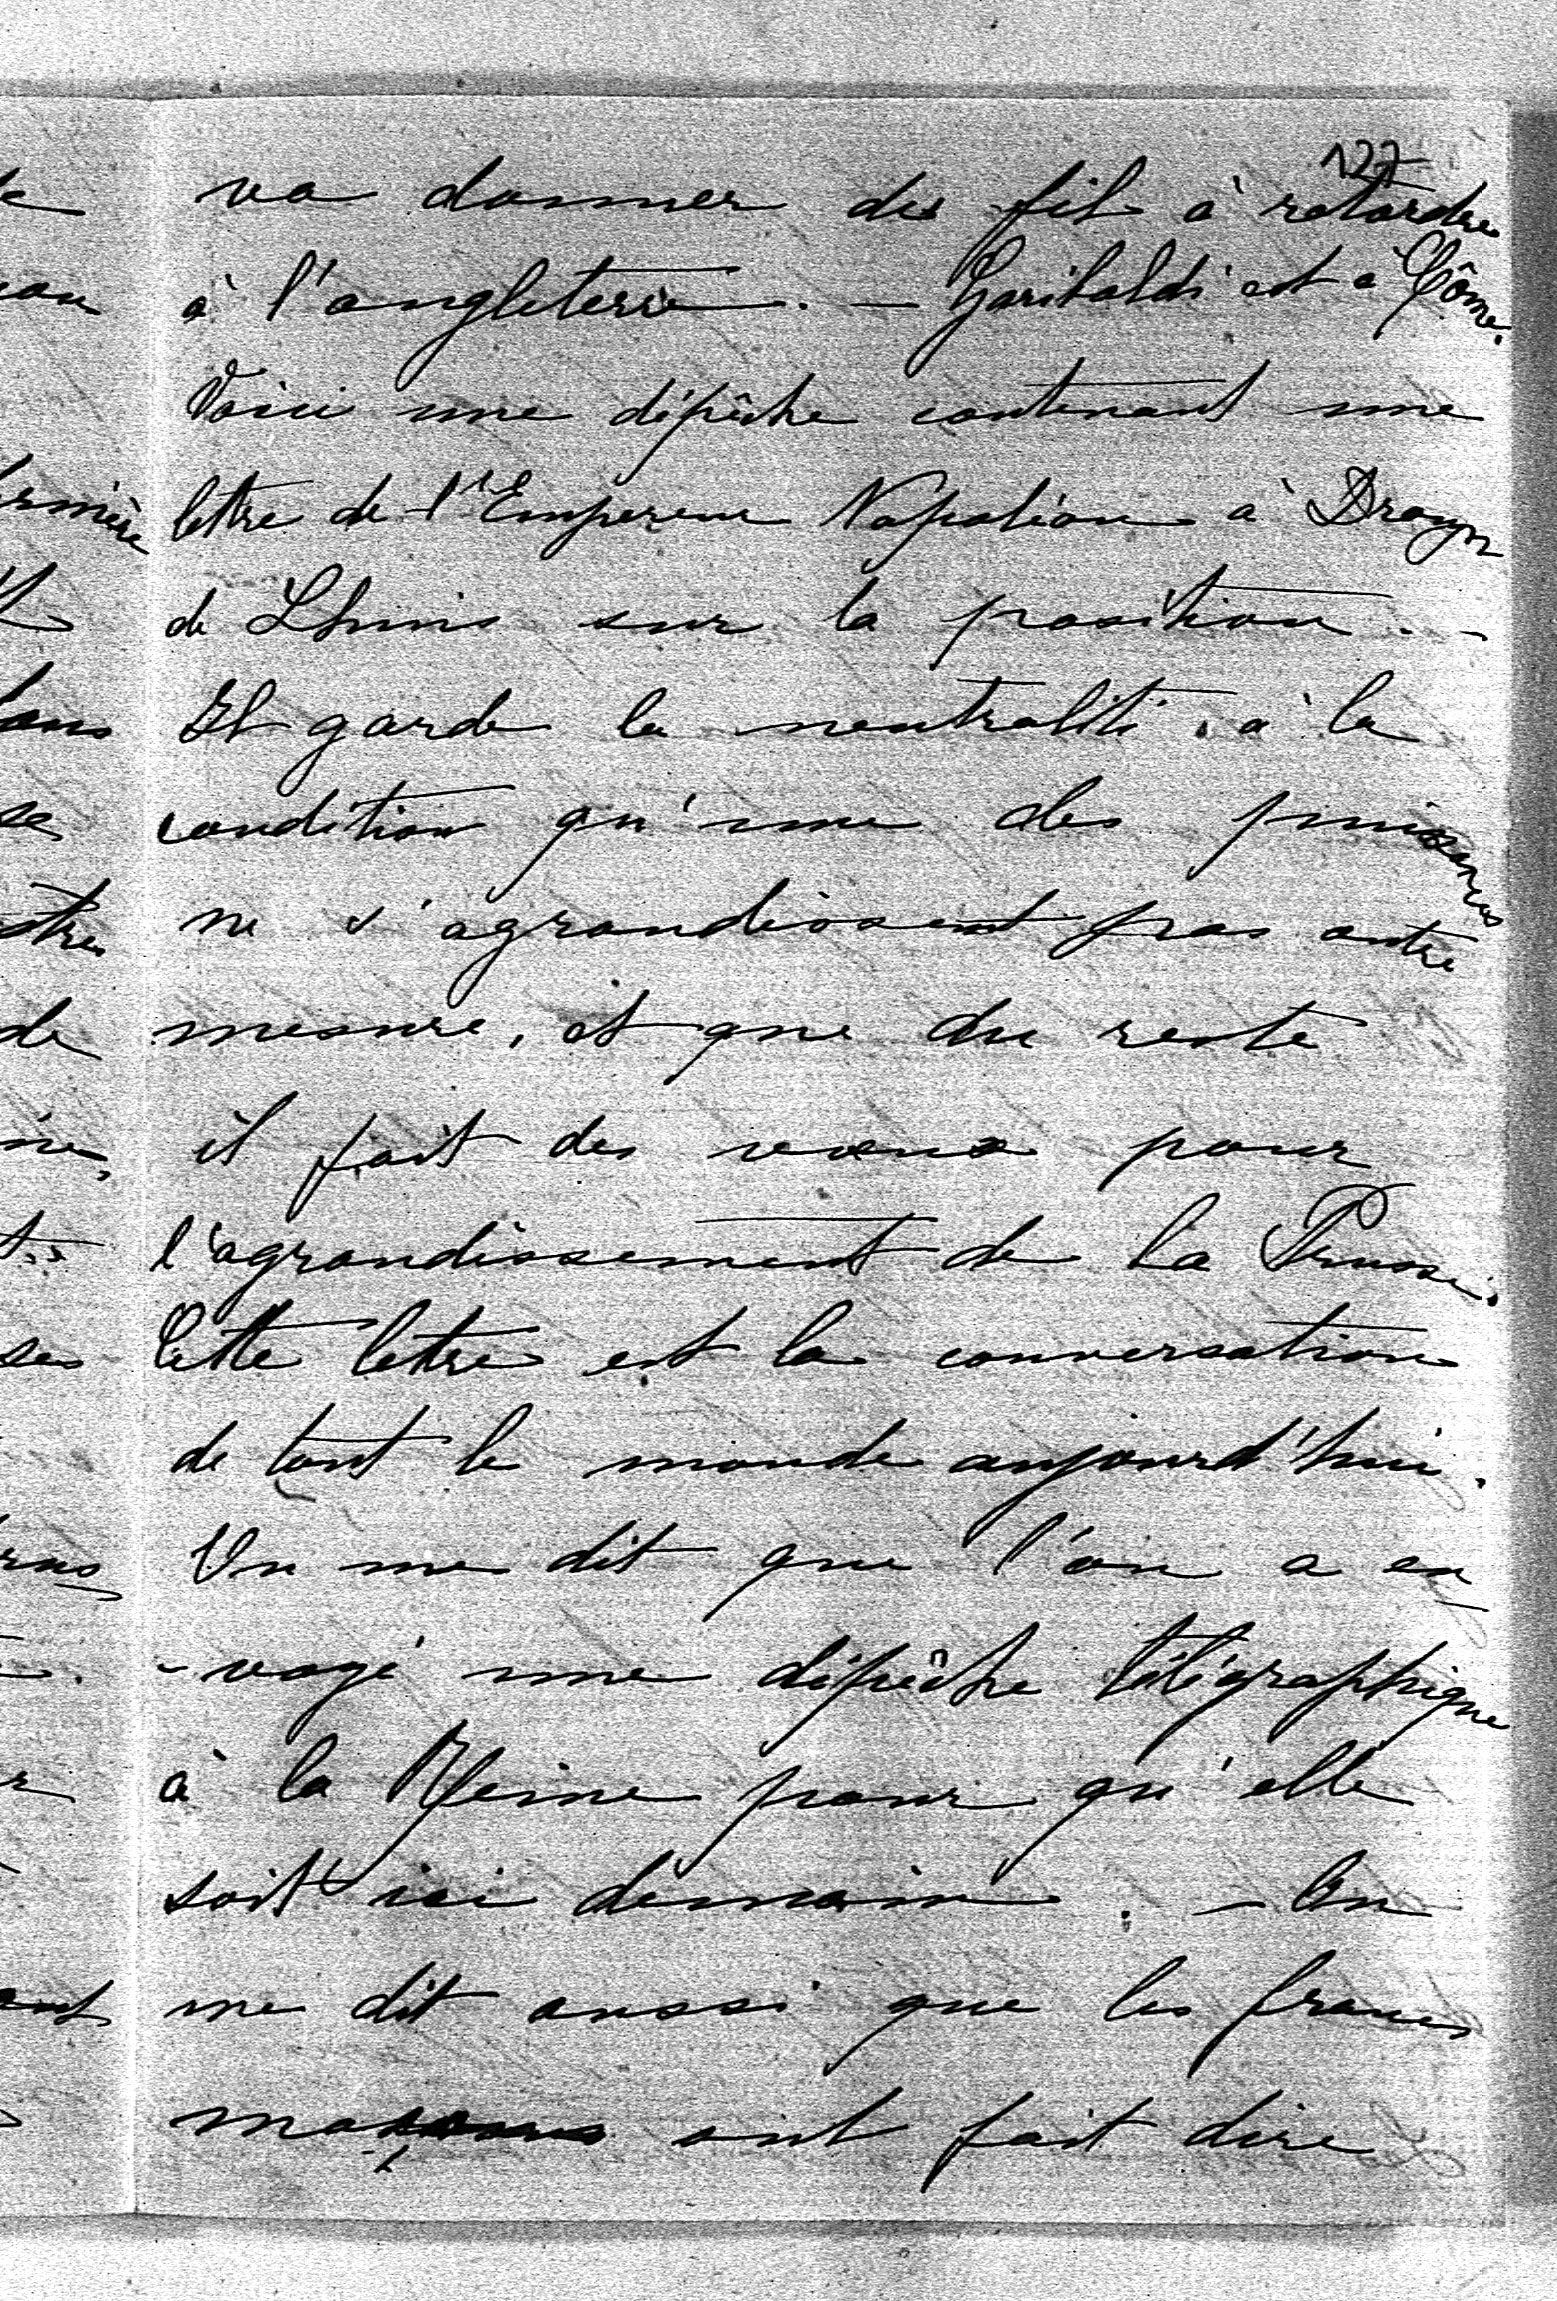 127
va donner des fil à retordre
à l'angleterre. — Garibaldi est à Côme.
Voici une dépêche contenant une
lettre de l'Empereur Napoléon à Drouyn
de Lhuis sur la position. -
Il garde la neutralité à la
condition qu'une des puissances
ne s'agrandissent pas outre
mesure, et que du reste
il fait des voeux pour
l'agrandissement de la Prusse.
Cette lettre est la conversation
de tout le monde aujourd'hui.
On me dit que l'on a en
- voyé une dépêche télégraphique
à la Reine pour qu'elle
soit ici demain. — On
me dit aussi que les francs
maçons ont fait dire